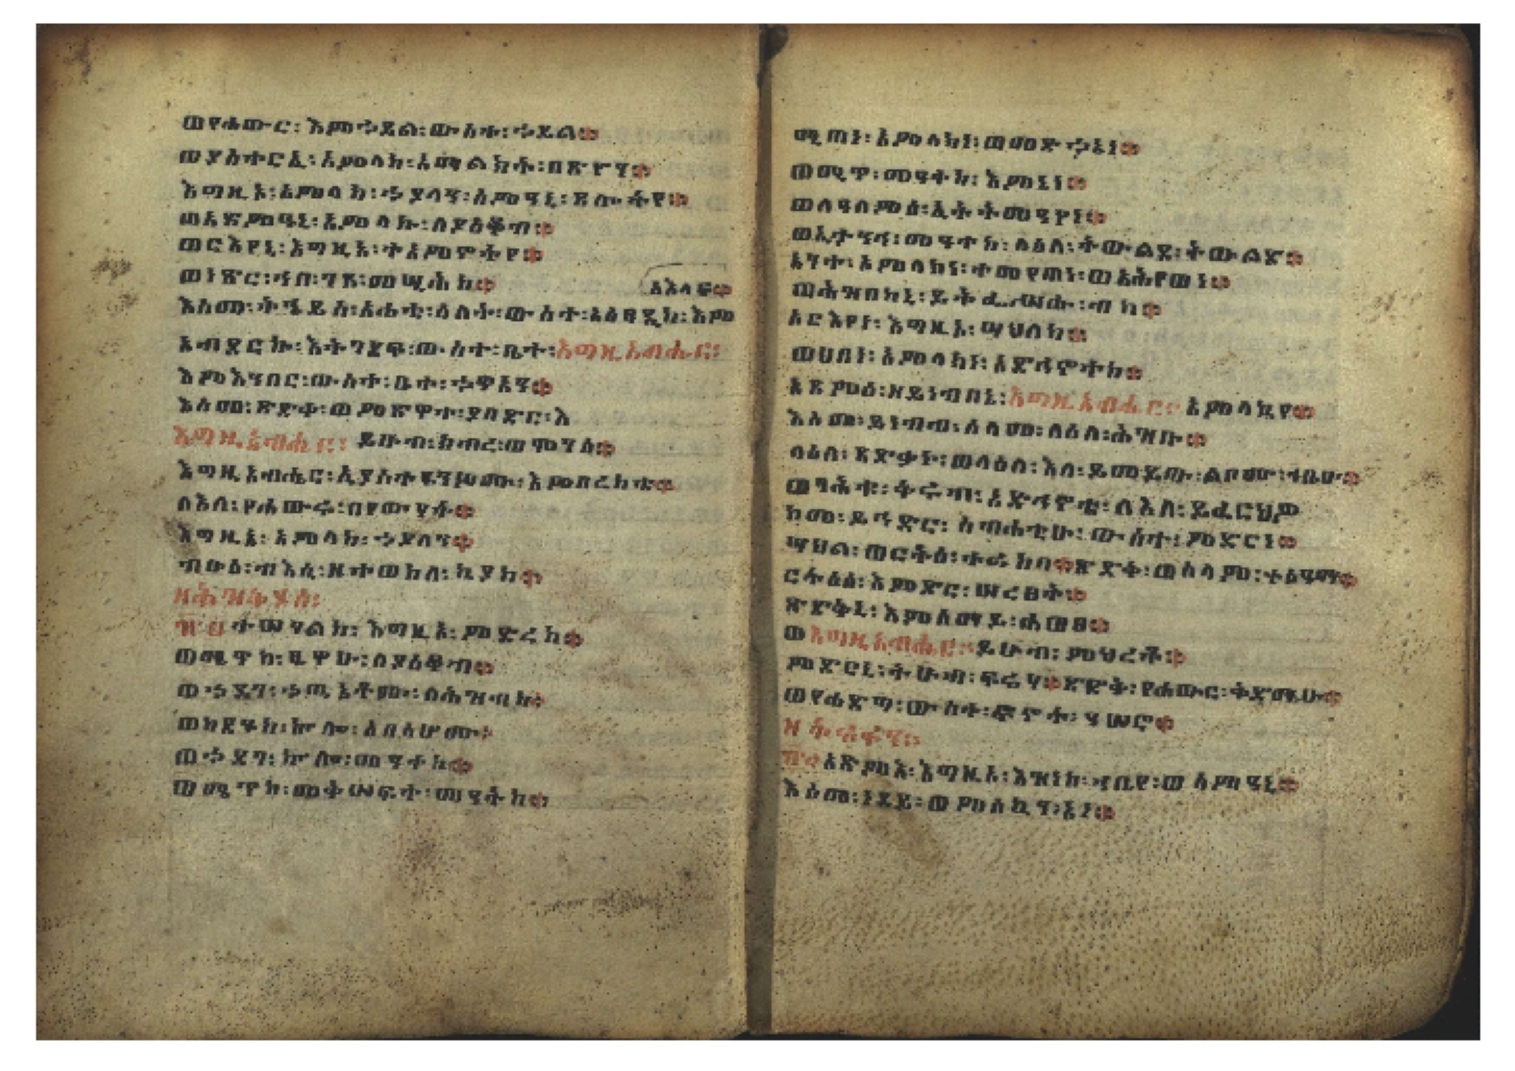 ወየሐውር፡እምኀይል፡ውስተ፡ኀይል።
ወያስተርኢ፡አምላክ፡አማልክት፡በጽዮን።
እግዚኦ፡አምላክ፡ኃያላን፡ስምዓኒ፡ጸሎትየ።
ወአጽምዓኒ፡አምላኩ፡ለያዕቆብ።
ወርእየኒ፡እግዚኦ፡ተአምኖትየ።
ወነጽር፡ኀበ፡ገጸ፡መሢሕከ።
አእላፍ።
እስመ፡ትኄይስ፡አሐቲ፡ዕለት፡ውስተ፡አዕፃዲከ፡እም
አብደርኩ፡እትገደፍ፡ውስተ፡ቤተ፡እግዚአብሔር፡
እምእንበር፡ውስተ፡ቤተ፡ኃጥአን።
እስመ፡ጽድቀ፡ወምጽዋተ፡ያበድር፡እ
እግዚአብሔር፡ ይሁብ፡ክብረ፡ወሞገሰ።
እግዚአብሔር፡ኢያስተፄንሶሙ፡እምበረከቱ።
ለእለ፡የሐውሩ፡በየውሃት።
እግዚኦ፡አምላክ፡ኃያላን።
ብፁዕ፡ብእሲ፡ዘተወከለ፡ኪያከ።
ዘሕዝቅያስ፡
፹፬ተሣሃልከ፡እግዚኦ፡ምድረከ።
ወሜጥከ፡ፂዋሁ፡ለያዕቆብ።
ወኃደገ፡ኃጢአቶሙ፡ለሕዝብከ።
ወከደንከ፡ኵሎ፡አበሳሆሙ።
ወኃደገ፡ኵሎ፡መዓተከ።
ወሜጥከ፡መቅሠፍተ፡መዓትከ።
ሚጠነ፡አምላክነ፡ወመድኃኒነ።
ወሚጥ፡መዓተከ፡እምኔነ።
ወለዓለምሰ፡ኢትትመዓየነ።
ወኢታንኅ፡መዓተከ፡ለዕለ፡ትውልደ፡ትውልድ።
አንተ፡አምላክነ፡ተመየጠነ፡ወአሕየወነ።
ወሕዝብከኒ፡ይትፌሥሑ፡ብከ።
አርእየነ፡እግዚኦ፡ሣህለከ።
ወሀበነ፡አምላክነ፡አድኅኖተከ።
አጽምዕ፡ዘይነብበኒ፡እግዚአብሔር፡አምላኪየ።
እስመ፡ይነብብ፡ሰላመ፡ለዕለ፡ሕዝቡ።
ላዕለ፡ጻድቃኑ፡ወላዕለ፡እለ፡ይመይጡ፡ልቦሙ፡ኀቤሁ።
ወባሕቱ፡ቅሩብ፡አድኅኖቱ፡ለእለ፡ይፈርህዎ
ከመ፡ይኅድር፡ስብሐቲሁ፡ውስተ፡ምድርነ።
ሣህል፡ወርትዕ፡ተራከባ።ጽድቅ፡ወሰላም፡ተዕማኃ።
ርትዕሰ፡እምድር፡ሠረፀት።
ጽድቅኒ፡እምሰማይ፡ሐወፀ።
ወእግዚአብሔር፡ይሁብ፡ምህረቶ።
ምድርኒ፡ትሁብ፡ፍሬሃ።ጽድቅ፡የሐውር፡ቅድሜሁ።
ወየሐድግ፡ውስተ፡ፍኖተ፡ሃ
፹፭አጽምእ፡እግዚኦ፡እዝነከ፡ኀቤየ፡ወስምዓኒ።
እስመ፡ነዳይ፡ወምስኪን፡አነ።